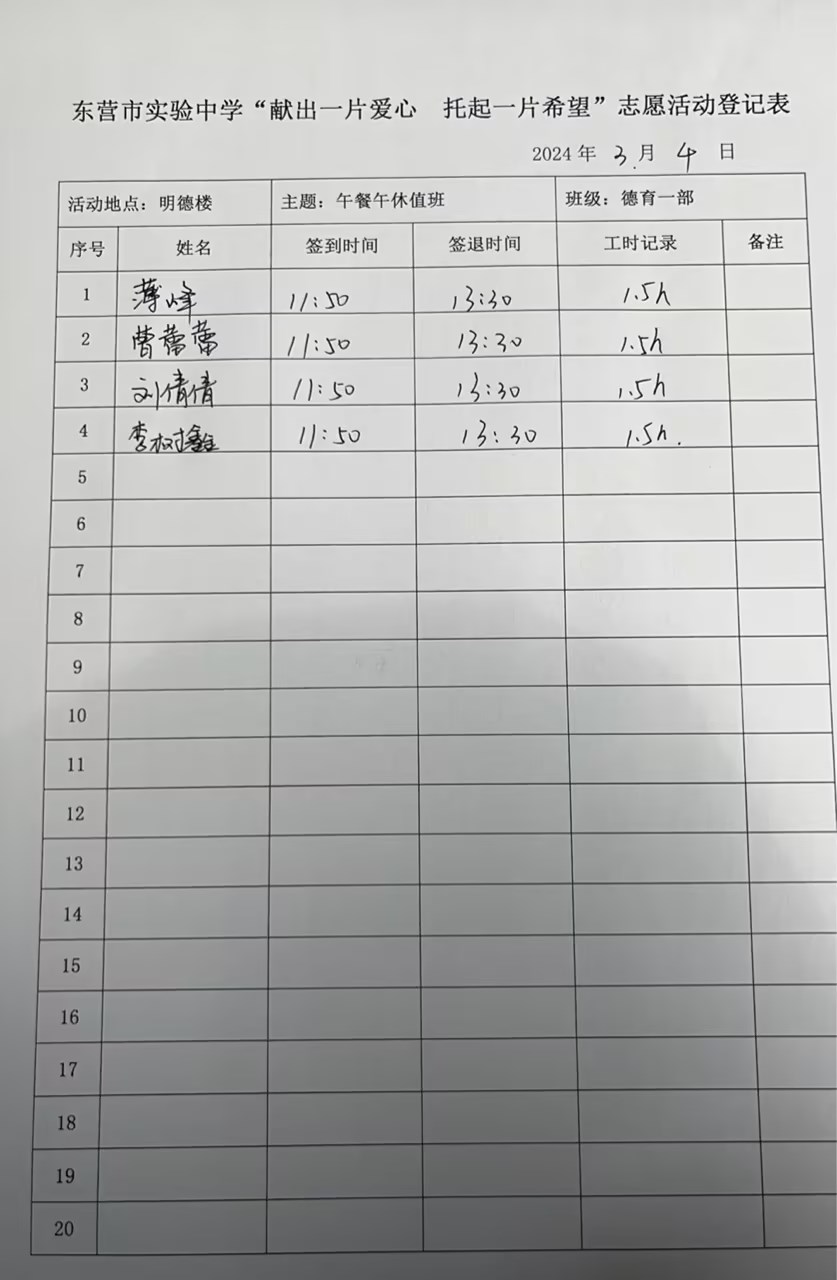 东营市实验中学“献出一片爱心 托起一片希望”志愿活动登记表
2024 年 3 月 4 日
活动地点：明德楼 主题：午餐午休值班 班级：德育一部
序号 姓名 签到时间 签退时间 工时记录 备注
1 薄峰 11:50 13:30 1.5h
2 曹蕾蕾 11:50 13:30 1.5h
3 刘倩倩 11:50 13:30 1.5h
4 李树鑫 11:50 13:30 1.5h.
5
6
7
8
9
10
11
12
13
14
15
16
17
18
19
20